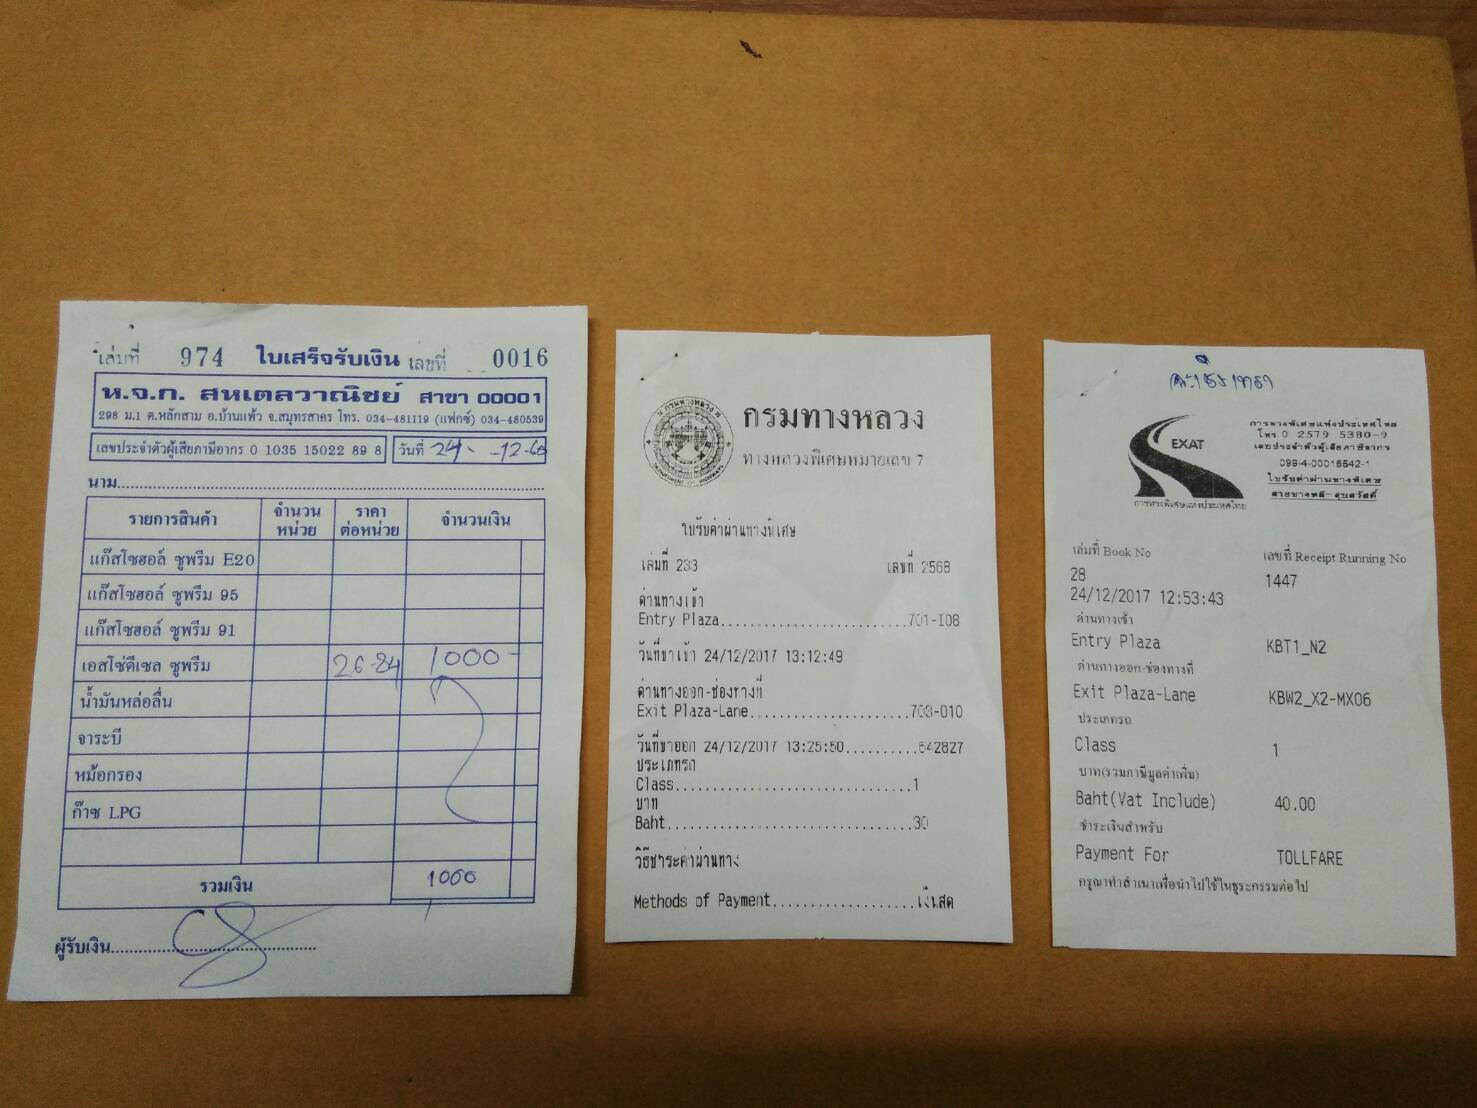 เล่มที่ 974 ใบเสร็จรับเงิน เลขที่ 0016
ห.จ.ก. สหเตลวาณิชย์ สาขา 00001
298 ม.1 ต.หลักสาม อ.บ้านแพ้ว จ.สมุทรสาคร โทร. 034-481119 (แฟกซ์) 034-480539
เลขประจำตัวผู้เสียภาษีอากร 0 1035 15022 89 8 วันที่ 24 - 12-60
นาม
รายการสินค้า จำนวนหน่วย ราคาต่อหน่วย จำนวนเงิน
แก๊สโซฮอล์ ซูพรีม E20
แก๊สโซฮอล์ ซูพรีม 95
แก๊สโซฮอล์ ซูพรีม 91
เอสโซ่ดีเซล ซูพรีม 26-84 1000-
น้ำมันหล่อลื่น
จาระบี
หม้อกรอง
ก๊าซ LPG
รวมเงิน 1000
ผู้รับเงิน
กรมทางหลวง
ทางหลวงพิเศษหมายเลข 7
ใบรับค่าผ่านทางพิเศษ
เล่มที่ 233 เลขที่ 2568
ด่านทางเข้า
Entry Plaza.........................701-I08
วันที่ขาเข้า 24/12/2017 13:12:49
ด่านทางออก-ช่องทางที่
Exit Plaza-Lane.....................703-010
วันที่ขาออก 24/12/2017 13:25:50..........642827
ประเภทรถ
Class................................1
บาท
Baht.................................30
วิธีชำระค่าผ่านทาง
Methods of Payment...................เงินสด
ฉะเชิงเทรา
EXAT
การทางพิเศษแห่งประเทศไทย
การทางพิเศษแห่งประเทศไทย
โทร 0 2579 5380-9
เลขประจำตัวผู้เสียภาษีอากร
099-4-00016542-1
ใบรับค่าผ่านทางพิเศษ
สายบางพลี-สุขสวัสดิ์
เล่มที่ Book No เลขที่ Receipt Running No
28 1447
24/12/2017 12:53:43
ด่านทางเข้า
Entry Plaza KBT1_N2
ด่านทางออก-ช่องทางที่
Exit Plaza-Lane KBW2_X2-MX06
ประเภทรถ
Class 1
บาท(รวมภาษีมูลค่าเพิ่ม)
Baht(Vat Include) 40.00
ชำระเงินสำหรับ
Payment For TOLLFARE
กรุณาทำสำเนาเพื่อนำไปใช้ในธุระกรรมต่อไป